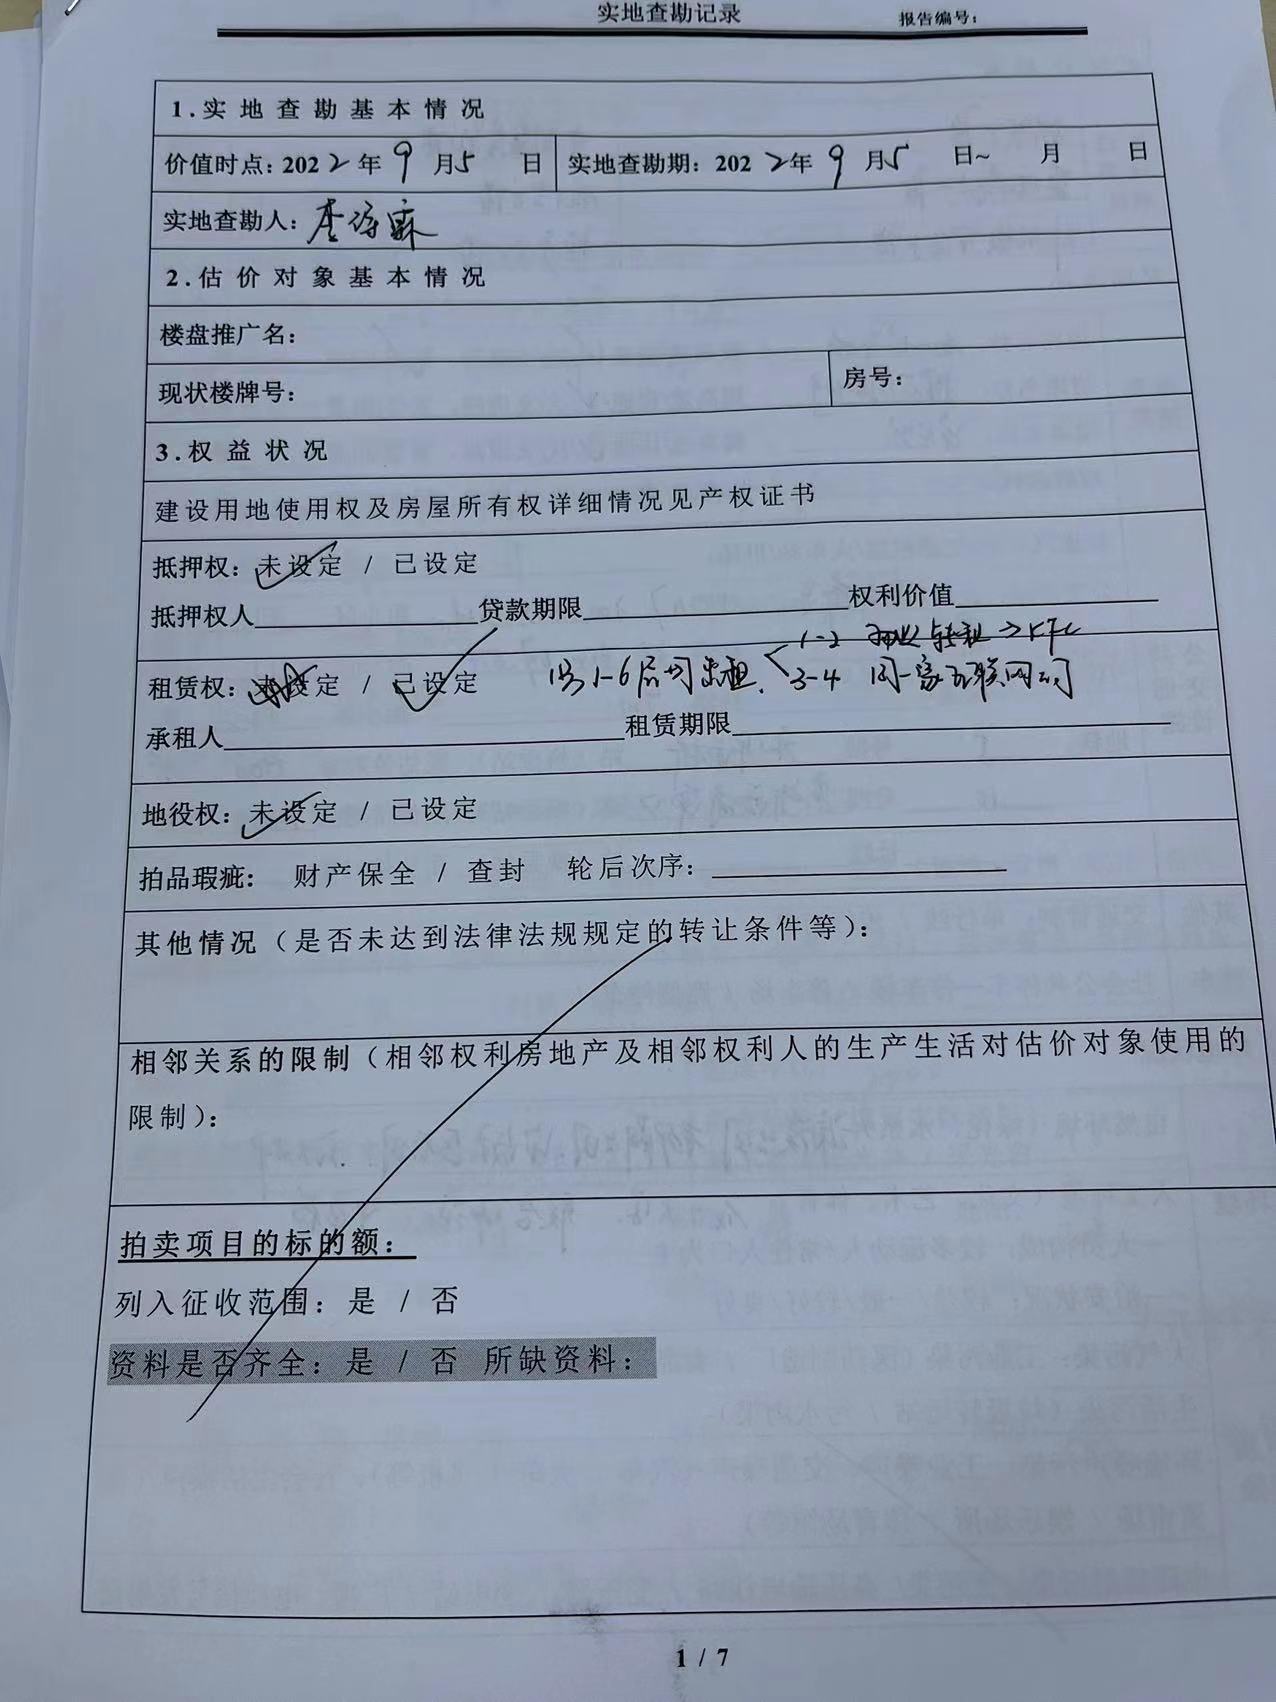 实地查勘记录
报告编号：
1.实地查勘基本情况
价值时点：2022年9月5日 实地查勘期：2022年9月5日~ 月 日
实地查勘人：李
2.估价对象基本情况
楼盘推广名：
现状楼牌号： 房号：
3.权益状况
建设用地使用权及房屋所有权详细情况见产权证书
抵押权：未设定 / 已设定
抵押权人 贷款期限 权利价值
1-2 转租→KFC
租赁权：未设定 / 已设定 1-6层均出租 3-4 同一家互联网公司
承租人 租赁期限
地役权：未设定 / 已设定
拍品瑕疵： 财产保全 / 查封 轮后次序：
其他情况（是否未达到法律法规规定的转让条件等）：
相邻关系的限制（相邻权利房地产及相邻权利人的生产生活对估价对象使用的
限制）：
拍卖项目的标的额：
列入征收范围：是 / 否
资料是否齐全：是 / 否 所缺资料：
1 / 7